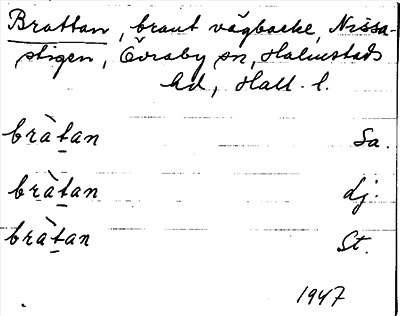 Brattan, brant vägbacke, Nissa-
stigen, Övraby sn, Halmstads
hd, Hall. l.
bràt̲an Sa.
bràt̲an dj.
bràt̲an St.
1947